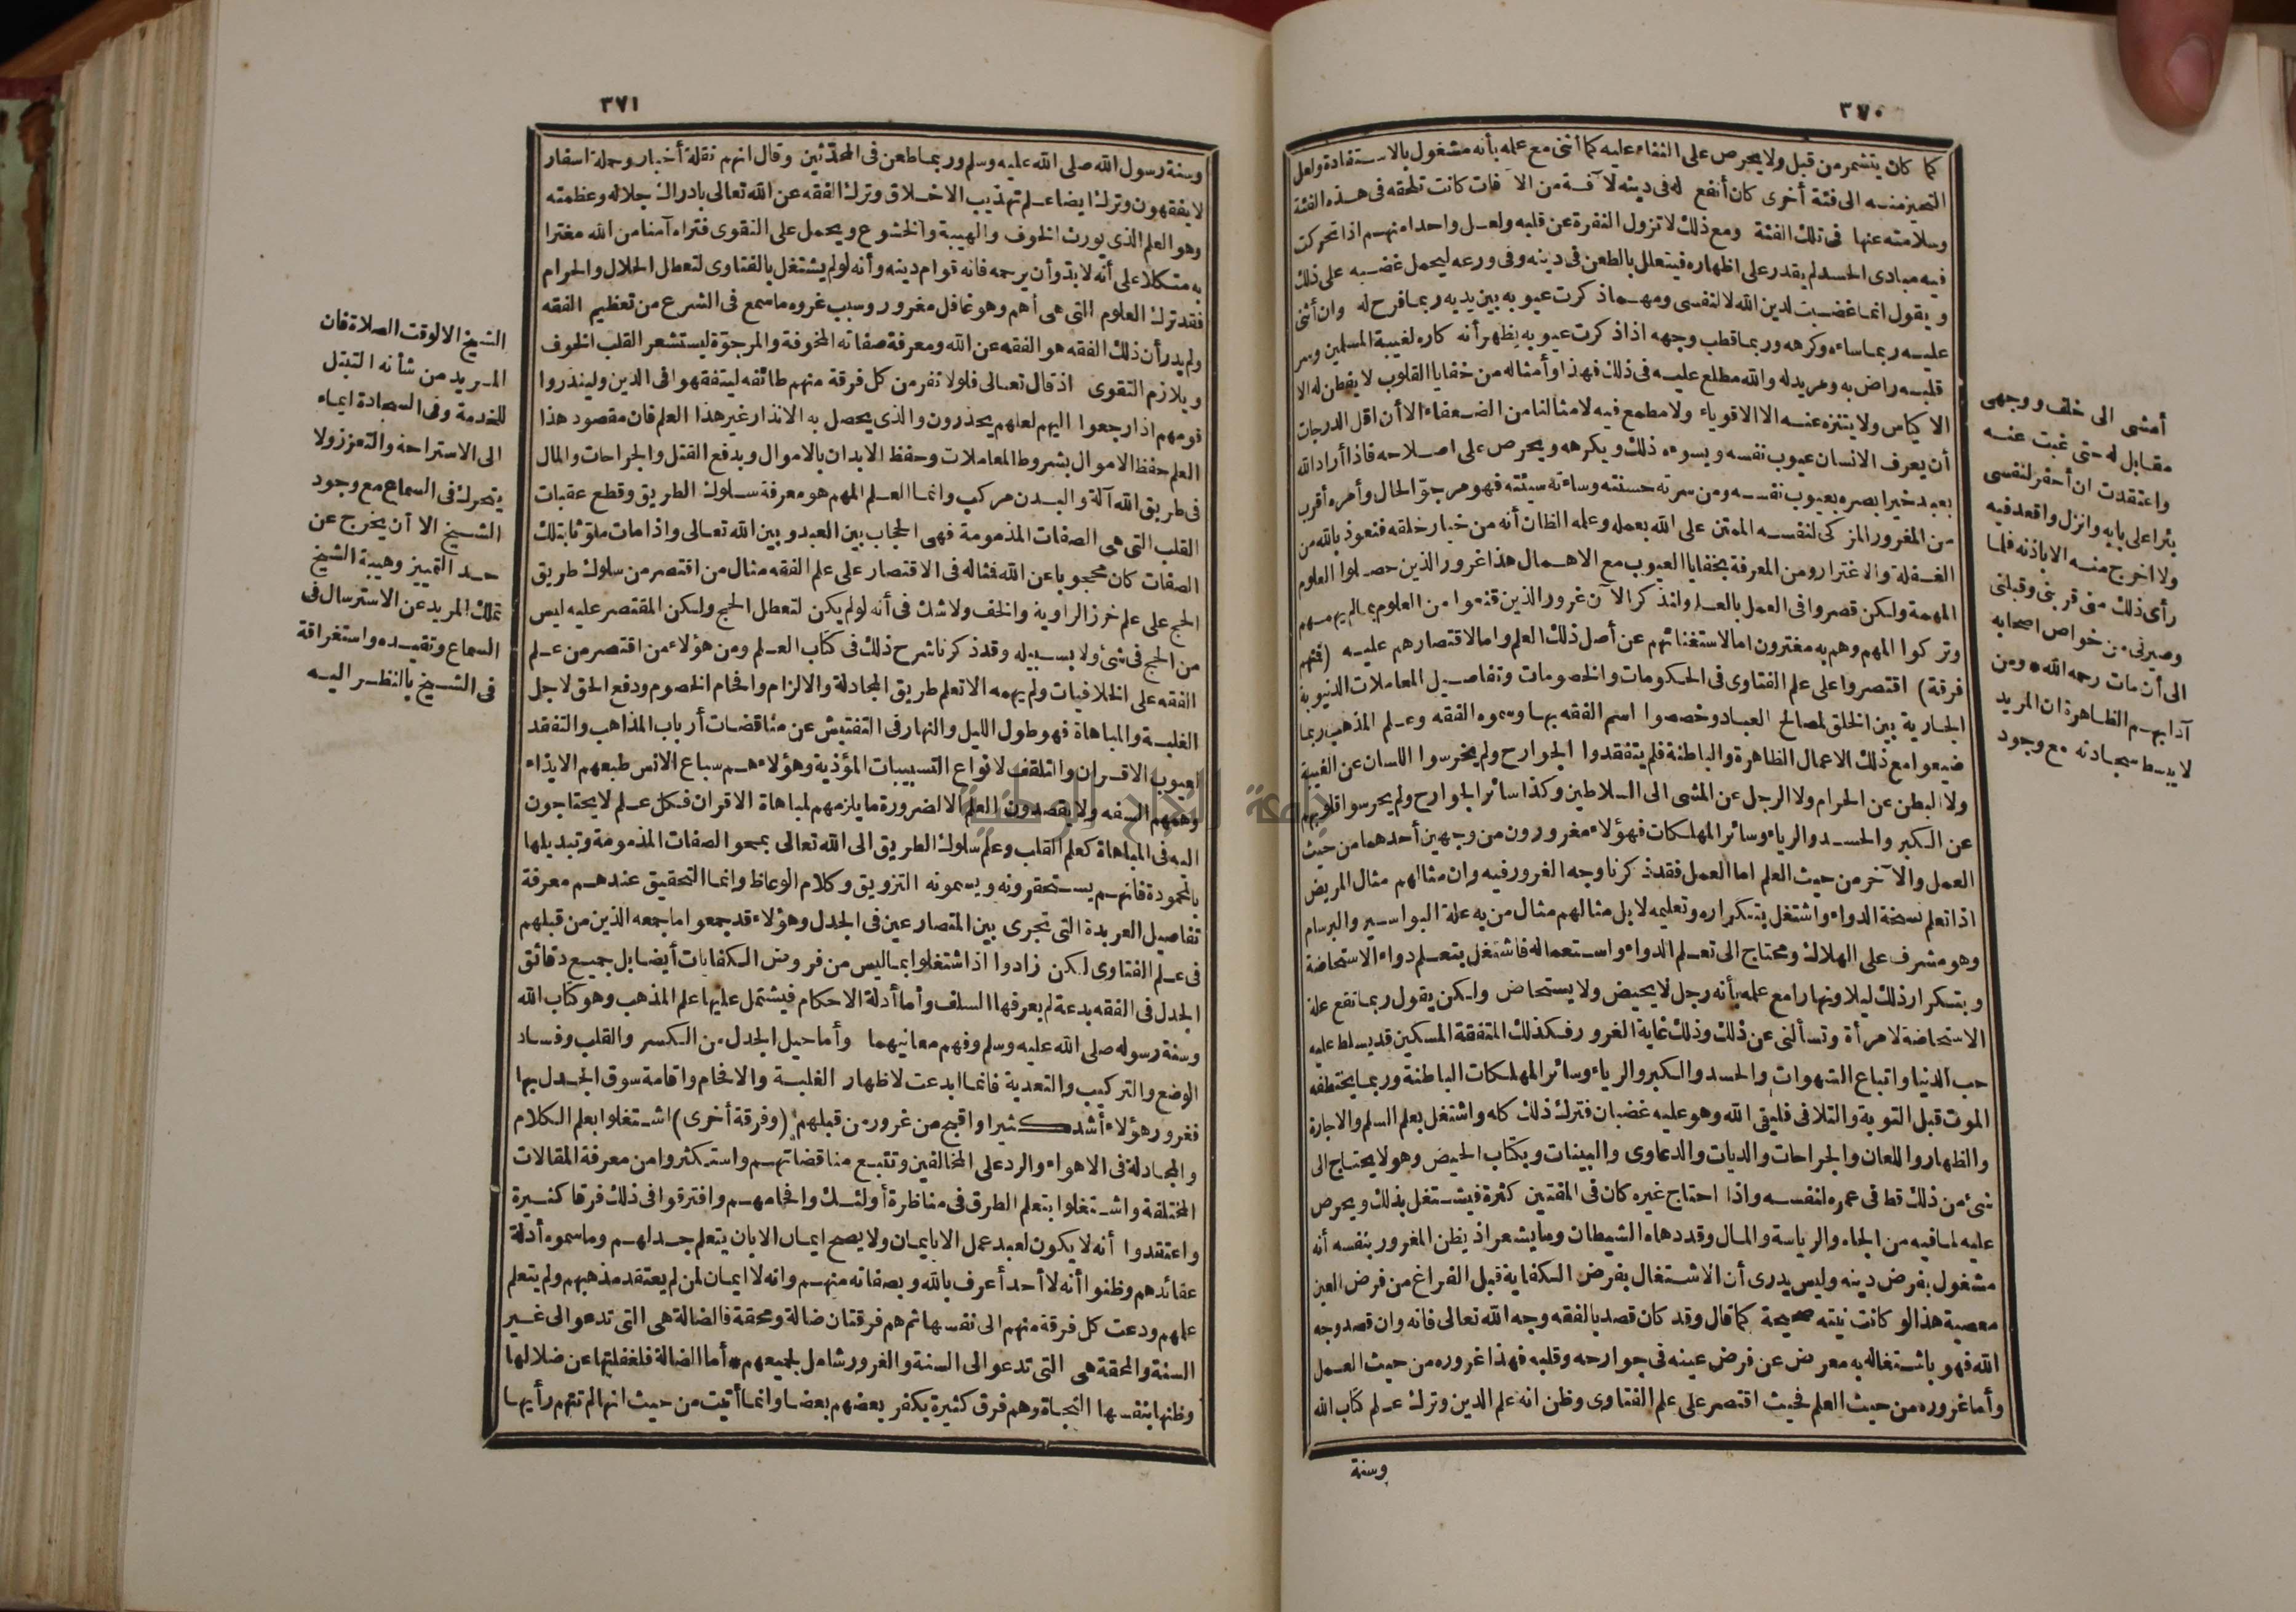 ٣٧٠
كما كان يتشمر من قبل ولا يحرص على الثناء عليه كما أثنى مع علمه بأنه مشغول بالاستفادة ولعل
التحيز منه الى فئة أخرى كان أنفع له فى دينه لآفة من الآفات كانت تلحقه فى هذه الفئة
وسلامته عنها فى تلك الفئة ومع ذلك لا تزول النفرة عن قلبه ولعل واحدا منهم اذا تحركت
فيه مبادى الحسد لم يقدر على اظهاره فيتعلل بالطعن فى دينه وفى ورعه ليحمل غضبه على ذلك
ويقول انما غضبت لدين الله لا لنفسى ومهما ذكرت عيوبه بين يديه ربما فرح له وان أثنى
عليه ربما ساءه وكرهه وربما قطب وجهه اذا ذكرت عيوبه يظهر أنه كاره لغيبة المسلمين وسر
قلبه راض به ومريد له والله مطلع عليه فى ذلك فهذا وأمثاله من خفايا القلوب لا يفطن له الا
الاكياس ولا يتنزه عنه الا الاقوياء ولا مطمع فيه لامثالنا من الضعفاء الا أن اقل الدرجات
أن يعرف الانسان عيوب نفسه ويسوءه ذلك ويكرهه ويحرص على اصلاحه فاذا أراد الله
بعبد خيرا بصره بعيوب نفسه ومن سرته حسنته وساءته سيئته فهو مرجوّ الحال وأمره أقرب
من المغرور المزكى لنفسه الممتن على الله بعمله وعلمه الظان أنه من خيار خلقه فنعوذ بالله من
الغفلة والاغترار ومن المعرفة بخفايا العيوب مع الاهمال هذا غرور الذين حصلوا العلوم
المهمة ولكن قصروا فى العمل بالعلم ولنذكر الآن غرور الذين قنعوا من العلوم بما لم يهمهم
وتركوا المهم وهم به مغترون اما لاستغنائهم عن أصل ذلك العلم واما لاقتصارهم عليه (فمنهم
فرقة) اقتصروا على علم الفتاوى فى الحكومات والخصومات وتفاصيل المعاملات الدنيوية
الجارية بين الخلق لمصالح العباد وخصصوا اسم الفقه بها وسموه الفقه وعلم المذهب وربما
ضيعوا مع ذلك الاعمال الظاهرة والباطنة فلم يتفقدوا الجوارح ولم يحرسوا اللسان عن الغيبة
ولا البطن عن الحرام ولا الرجل عن المشى الى السلاطين وكذا سائر الجوارح ولم يحرسوا قلوبهم
عن الكبر والحسد والرياء وسائر المهلكات فهؤلاء مغرورون من وجهين أحدهما من حيث
العمل والآخر من حيث العلم اما العمل فقد ذكرنا وجه الغرور فيه وان مثالهم مثال المريض
اذا تعلم نسخة الدواء واشتغل بتكراره وتعليمه لا بل مثالهم مثال من به علة البواسير والبرسام
وهو مشرف على الهلاك ومحتاج الى تعلم الدواء واستعماله فاشتغل بتعلم دواء الاستحاضة
وبتكرار ذلك ليلا ونهارا مع علمه بأنه رجل لا يحيض ولا يستحاض ولكن يقول ربما تقع علة
الاستحاضة لامرأة وتسألنى عن ذلك وذلك غاية الغرور فكذلك المتفقة المسكين قد يسلط عليه
حب الدنيا واتباع الشهوات والحسد والكبر والرياء وسائر المهلكات الباطنة وربما يختطفه
الموت قبل التوبة والتلافى فليقى الله وهو عليه غضبان فترك ذلك كله واشتغل بعلم السلم والاجارة
والظهار واللعان والجراحات والديات والدعاوى والبينات وبكتاب الحيض وهو لا يحتاج الى
شئ من ذلك قط فى عمره لنفسه واذا احتاج غيره كان فى المفتين كثرة فيشتغل بذلك ويحرص
عليه لما فيه من الجاه والرياسة والمال وقد دهاه الشيطان وما يشعر اذ يظن المغرور بنفسه أنه
مشغول بفرض دينه وليس يدرى أن الاشتغال بفرض الكفاية قبل الفراغ من فرض العين
معصية هذا لو كانت نيته صحيحة كما قال وقد كان قصد بالفقه وجه الله تعالى فانه وان قصد وجه
الله فهو باشتغاله به معرض عن فرض عينه فى جوارحه وقلبه فهذا غروره من حيث العمل
وأما غروره من حيث العلم فحيث اقتصر على علم الفتاوى وظن انه علم الدين وترك علم كتاب الله
وسنة
أمشى الى خلف ووجهى
مقابل له حتى غبت عنه
واعتقدت ان أحفر لنفسى
بئرا على بابه وانزل واقعد فيه
ولا اخرج منه الا باذنه فلما
رأى ذلك منى قربنى وقبلنى
وصيرنى من خواص اصحابه
الى أن مات رحمه الله * ومن
آدابهم الظاهرة ان المريد
لا يبسط سجادته مع وجود
٣٧١
وسنة رسول الله صلى الله عليه وسلم وربما طعن فى المحدّثين وقال انهم نقلة أخبار وحملة اسفار
لا يفقهون وترك ايضا علم تهذيب الاخلاق وترك الفقه عن الله تعالى بادراك جلاله وعظمته
وهو العلم الذى يورث الخوف والهيبة والخشوع ويحمل على التقوى فتراه آمنا من الله مغترا
به متكلا على أنه لا بدّ وأن يرحمه فانه قوام دينه وأنه لو لم يشتغل بالفتاوى لتعطل الحلال والحرام
فقد ترك العلوم التى هى أهم وهو غافل مغرور وسبب غروره ما سمع فى الشرع من تعظيم الفقه
ولم يدر أن ذلك الفقه هو الفقه عن الله ومعرفة صفاته المخوفة والمرجوّة ليستشعر القلب الخوف
ويلازم التقوى اذ قال تعالى فلولا نفر من كل فرقة منهم طائفه ليتفقهوا فى الدين ولينذروا
قومهم اذا رجعوا اليهم لعلهم يحذرون والذى يحصل به الانذار غير هذا العلم فان مقصود هذا
العلم حفظ الاموال بشروط المعاملات وحفظ الابدان بالاموال وبدفع القتل والجراحات والمال
فى طريق الله آلة والبدن مركب وانما العلم المهم هو معرفة سلوك الطريق وقطع عقبات
القلب التى هى الصفات المذمومة فهى الحجاب بين العبد وبين الله تعالى واذا مات ملوّثا بتلك
الصفات كان محجوبا عن الله فمثاله فى الاقتصار على علم الفقه مثال من اقتصر من سلوك طريق
الحج على علم خرز الراوية والخف ولا شك فى أنه لو لم يكن لتعطل الحج ولكن المقتصر عليه ليس
من الحج فى شئ ولا بسبيله وقد ذكرنا شرح ذلك فى كتاب العلم ومن هؤلاء من اقتصر من علم
الفقه على الخلافيات ولم يهمه الا تعلم طريق المجادلة والالزام وافحام الخصوم ودفع الحق لاجل
الغلبة والمباهاة فهو طول الليل والنهار فى التفتيش عن مناقضات أرباب المذاهب والتفقد
لعيوب الاقران والتلقف لانواع التسبيبات المؤذية وهؤلاء هم سباع الانس طبعهم الايذاء
وهمهم السفه ولا يقصدون العلم الا لضرورة ما يلزمهم لمباهاة الاقران فكل علم لا يحتاجون
اليه فى المباهاة كعلم القلب وعلم سلوك الطريق الى الله تعالى بمحو الصفات المذمومة وتبديلها
بالمحمودة فانهم يستحقرونه ويسمونه التزويق وكلام الوعاظ وانما التحقيق عندهم معرفة
تفاصيل العربدة التى تجرى بين المتصارعين فى الجدل وهؤلاء قد جمعوا ما جمعه الذين من قبلهم
فى علم الفتاوى لكن زادوا اذ اشتغلوا بما ليس من فروض الكفايات أيضا بل جميع دقائق
الجدل فى الفقه بدعة لم يعرفها السلف وأما أدلة الاحكام فيشتمل عليها علم المذهب وهو كتاب الله
وسنة رسوله صلى الله عليه وسلم وفهم معانيهما وأما حيل الجدل من الكسر والقلب وفساد
الوضع والتركيب والتعدية فانما ابدعت لاظهار الغلبة والافحام واقامة سوق الجدل بها
فغرور هؤلاء أشد كثيرا واقبح من غرور من قبلهم (وفرقة أخرى) اشتغلوا بعلم الكلام
والمجادلة فى الاهواء والرد على المخالفين وتتبع مناقضاتهم واستكثروا من معرفة المقالات
المختلفة واشتغلوا بتعلم الطرق فى مناظرة أولئك وافحامهم وافترقوا فى ذلك فرقا كثيرة
واعتقدوا أنه لا يكون لعبد عمل الا بايمان ولا يصح ايمان الا بان يتعلم جدلهم وما سموه أدلة
عقائدهم وظنوا أنه لا أحد أعرف بالله وبصفاته منهم وانه لا ايمان لمن لم يعتقد مذهبهم ولم يتعلم
علمهم ودعت كل فرقة منهم الى نفسها ثم هم فرقتان ضالة ومحقة فالضالة هى التى تدعو الى غير
السنة والمحقة هى التى تدعو الى السنة والغرور شامل لجميعهم * أما الضالة فلغفلتها عن ضلالها
وظنها بنفسها النجاة وهم فرق كثيرة يكفر بعضهم بعضا وانما أتيت من حيث انها لم تتهم رأيها
الشيخ الا لوقت الصلاة فان
المريد من شأنه التبتل
للخدمة وفى السجادة ايماء
الى الاستراحة والتعزز ولا
يتحرك فى السماع مع وجود
الشيخ الا أن يخرج عن
حد التمييز وهيبة الشيخ
تملك المريد عن الاسترسال فى
السماع وتقيده واستغراقة
فى الشيخ بالنظر اليه
جامعة النجاح الوطنية